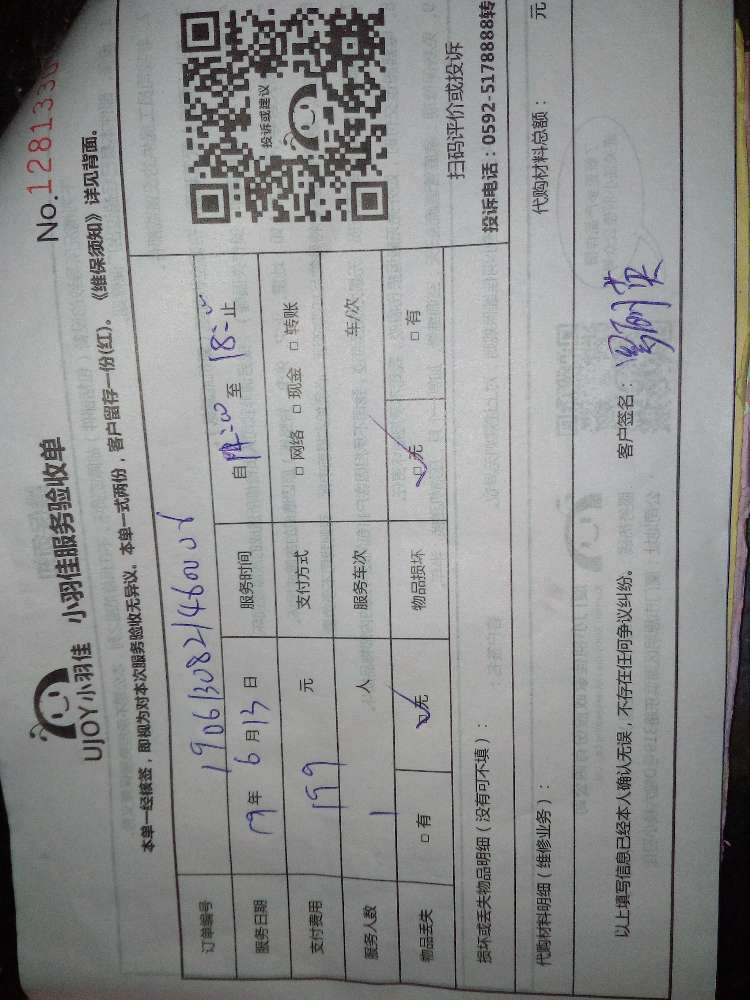 UJOY小羽佳 小羽佳服务验收单
No.1281330
本单一经核签，即视为对本次服务验收无异议。本单一式两份，客户留存一份(红)。《维保须知》详见背面。
订单编号 190613082146000
服务日期 19年 6月13日 服务时间 自 14:00 至 18:00 止
支付费用 199 元 支付方式 □网络 □现金 □转账
服务人数 1 人 服务车次 车/次
物品丢失 □有 ☑无 物品损坏 ☑无 □有
投诉或建议
扫码评价或投诉
投诉电话：0592-5178888转
损坏或丢失物品明细（没有可不填）：
代购材料明细（维修业务）： 代购材料总额： 元
以上填写信息已经本人确认无误，不存在任何争议纠纷。 客户签名：